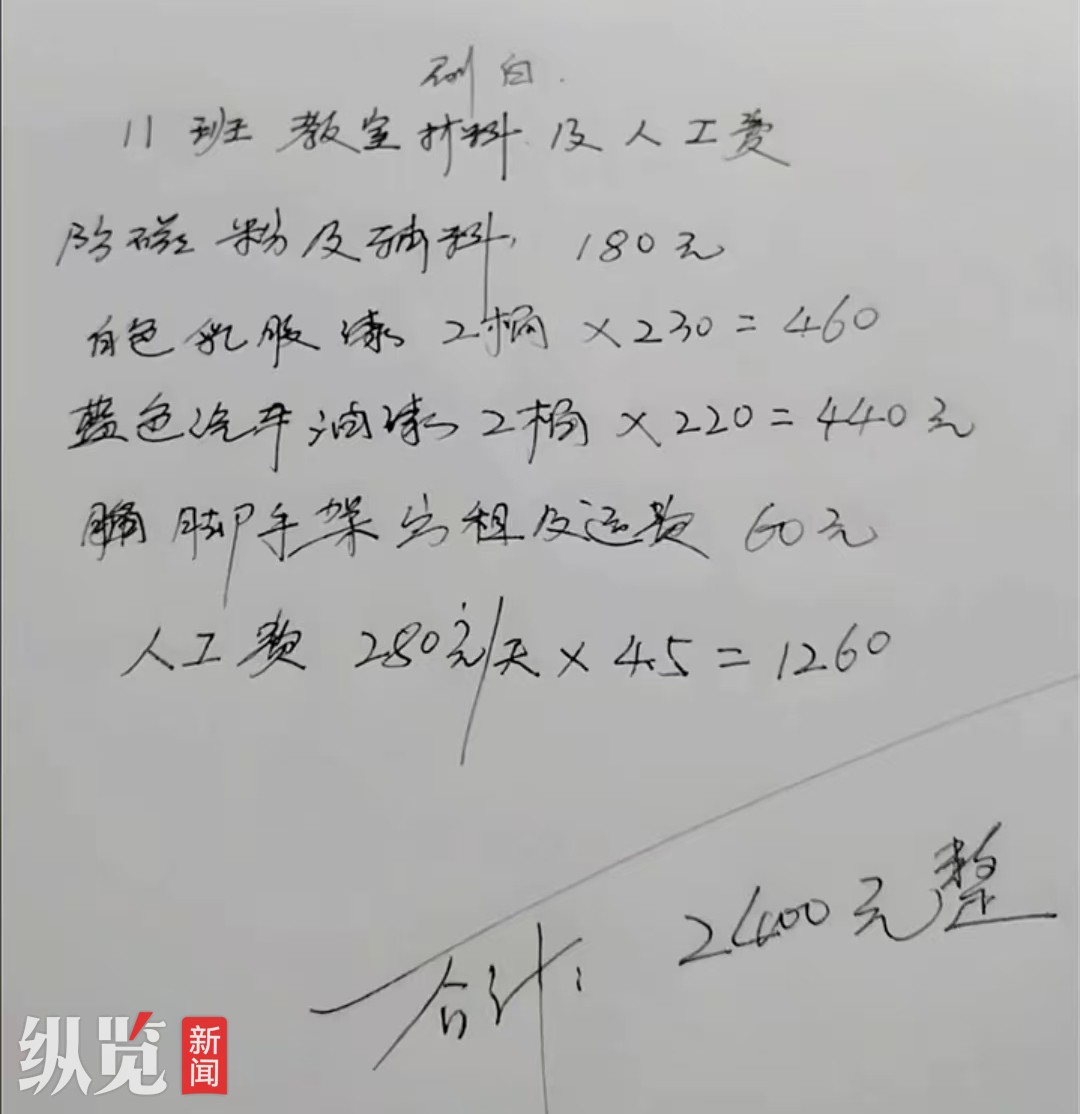 刷白.
11班教室材料及人工费
防磁粉及辅料, 180元
白色乳胶漆 2桶 ×230=460
蓝色汽车油漆 2桶 ×220=440元
脚手架出租及运费 60元
人工费 280元/天×4.5=1260
合计: 2400元整
纵览新闻